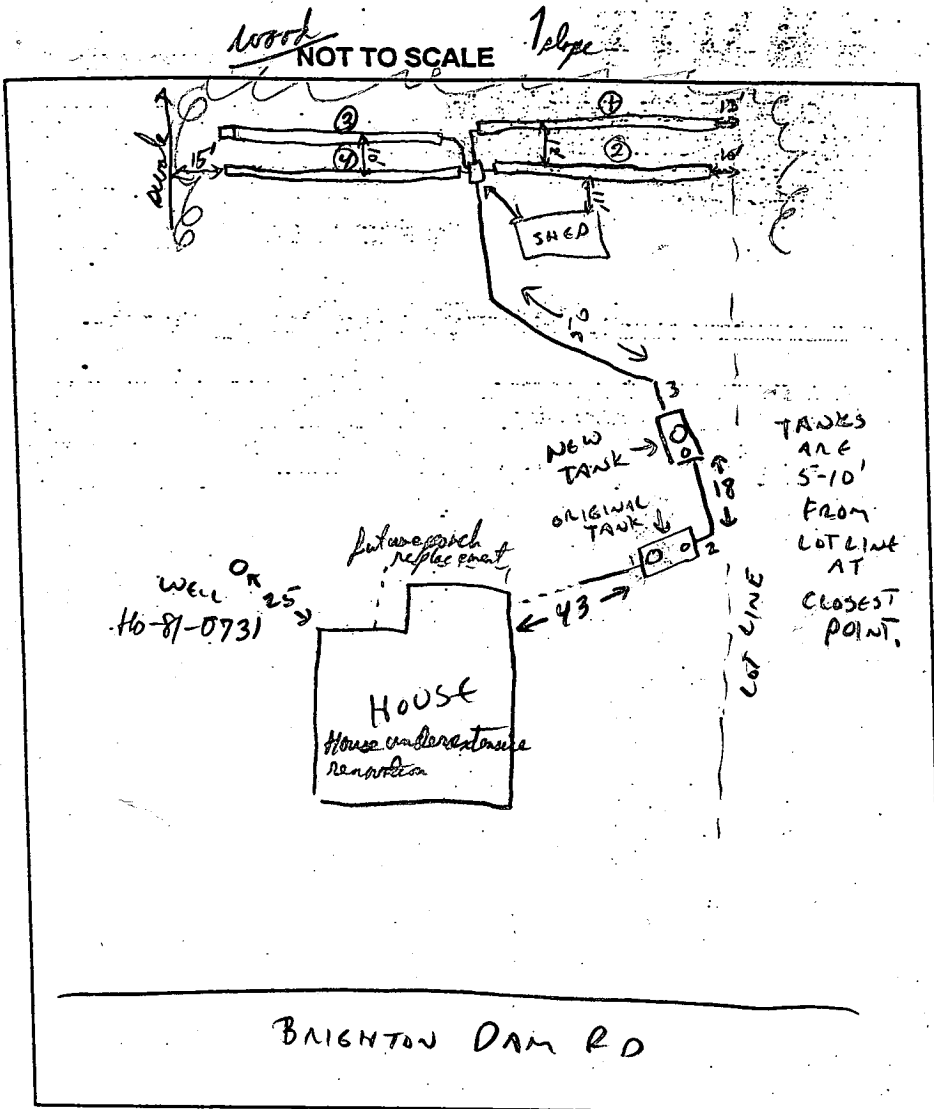 wood
NOT TO SCALE
slope
swale
15'
③
④
10'
①
②
12'
10'
11'
SHED
50
3
NEW
TANK
18
ORIGINAL
TANK
2
TANKS
ARE
5-10'
FROM
LOT LINE
AT
CLOSEST
POINT.
LOT LINE
future porch
replacement
WELL
25
HO-81-0731
43
HOUSE
House under extensive
renovation
BRIGHTON DAM RD